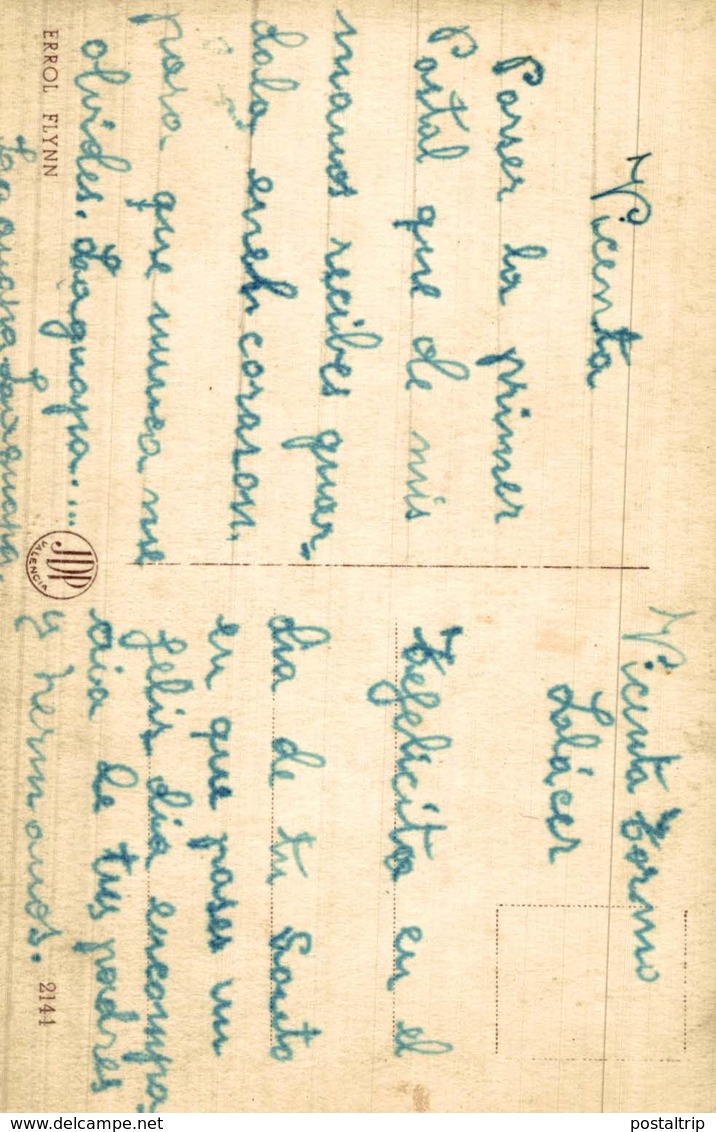 Vicenta
Posser la primer
Postal que de mis
manos recibes guar-
dala en eh corason.
para que nunca me
olvides. Laguapa....
ERROL FLYNN
JDP
VALENCIA
Vicenta Tormo
Lolácer
Tefelicito en el
dia de tu Santo
en que pases un
felis dia encompa-
ñia de tus padres
y hermanos.
2144
postaltrip